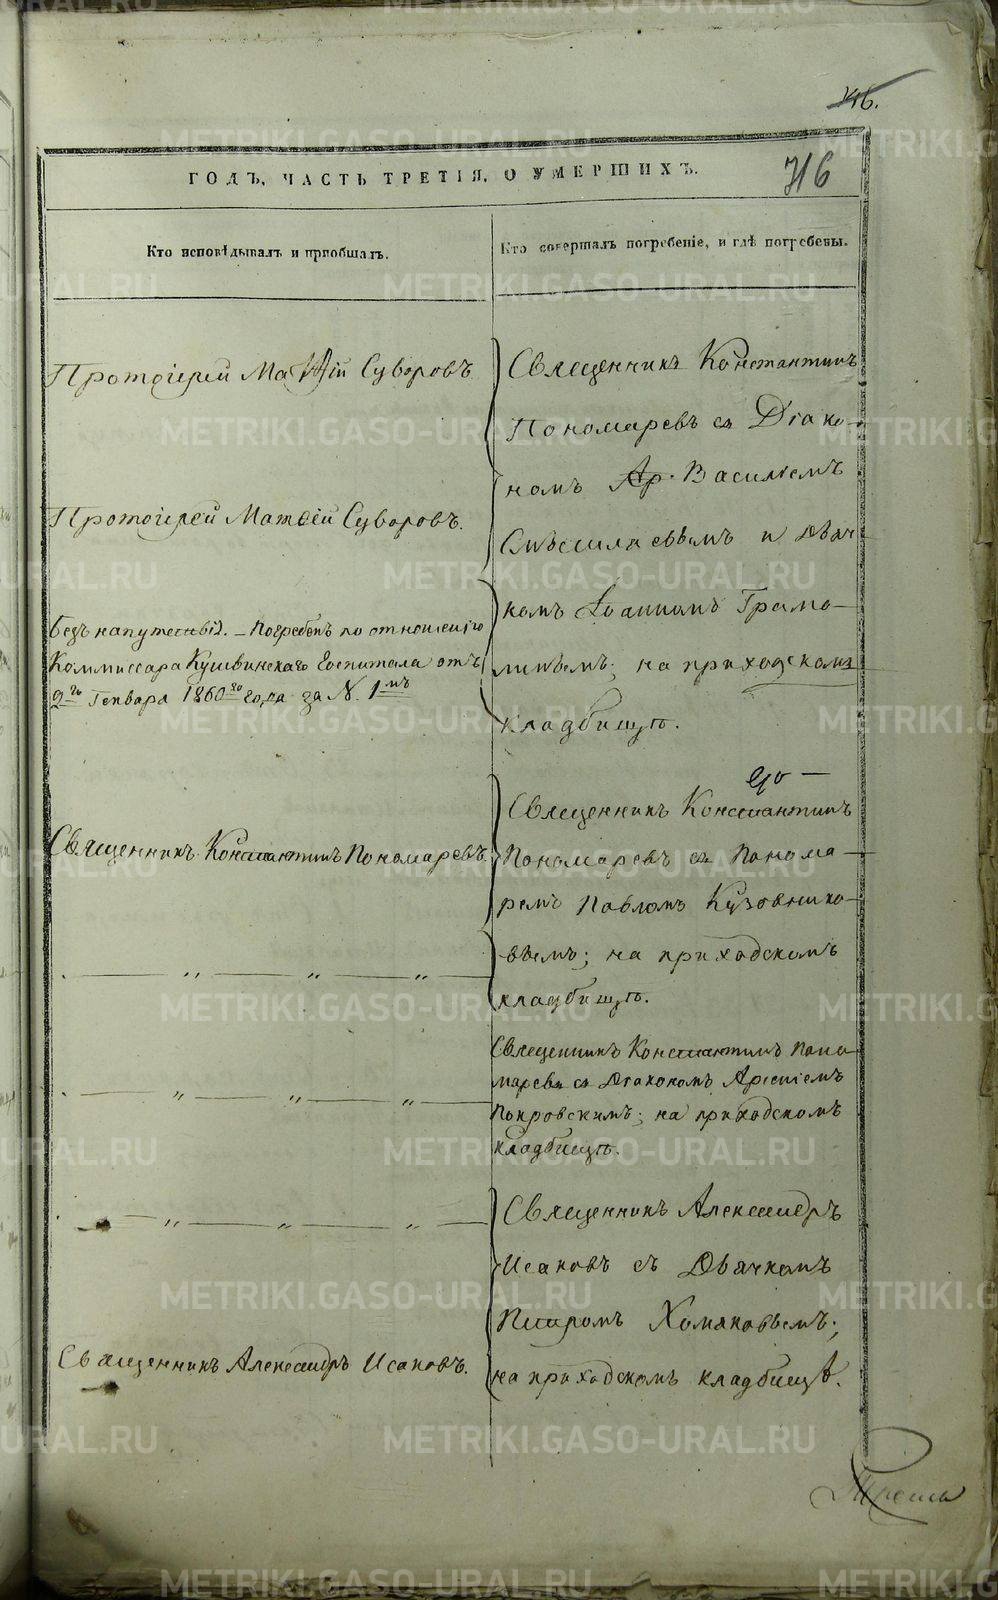 716
ГОДЪ, ЧАСТЬ ТРЕТІЯ, О УМЕРШИХЪ.
Кто исповѣдывалъ и пріобщалъ.
Кто совершалъ погребеніе, и гдѣ погребены.
Протоіерей Матѳій Суворовъ
Протоіерей Матѳей Суворовъ.
Безъ напутствія. – Погребенъ по отношенію
Коммиссара Кушвинскаго Госпиталя отъ
2го Генваря 1860го года за N. 1мъ
Священникъ Константинъ Пономаревъ.
— " — " — " —
— " — " — " —
— " — " — " —
Священникъ Александръ Исаковъ.
Священникъ Константинъ
Пономаревъ съ Діако-
номъ Ар. Василіемъ
и Дьяч-
комъ Іоанномъ Грамо-
на приходскомъ
кладбищѣ.
Священникъ Константинъ
Пономаревъ съ Понома-
ремъ Павломъ Кузовнико-
вымъ; на приходскомъ
кладбищѣ.
Священникъ Константинъ Поно-
маревъ съ Діакономъ Арсеніемъ
Покровскимъ; на приходскомъ
кладбищѣ.
Священникъ Александръ
Исаковъ съ Дьячкомъ
Петромъ Хомяковымъ;
на приходскомъ кладбищѣ.
METRIKI.GASO-URAL.RU